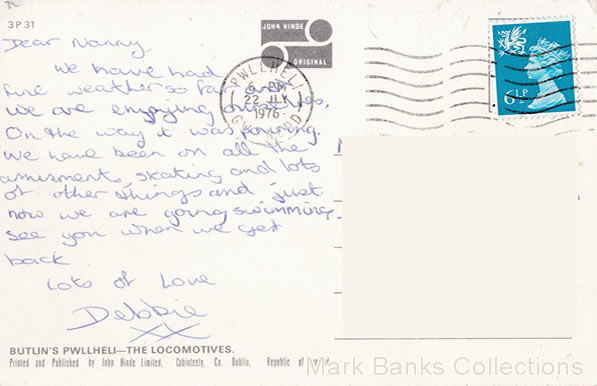 3 P 31
JOHN HINDE
ORIGINAL
Dear Nanny.
We have had
fine weather so far and
we are enjoying ourselves.
On the way it was pouring.
We have been on all the
amusments, skating and lots
of other things and just
now we are going swimming.
see you when we get
back
Lots of Love
Debbie
XX
PWLLHELI
6 PM
22 JLY
1976
GWYNEDD
6½P
BUTLIN'S PWLLHELI—THE LOCOMOTIVES.
Printed and Published by John Hinde Limited, Cabinteely, Co. Dublin, Republic of
Mark Banks Collections